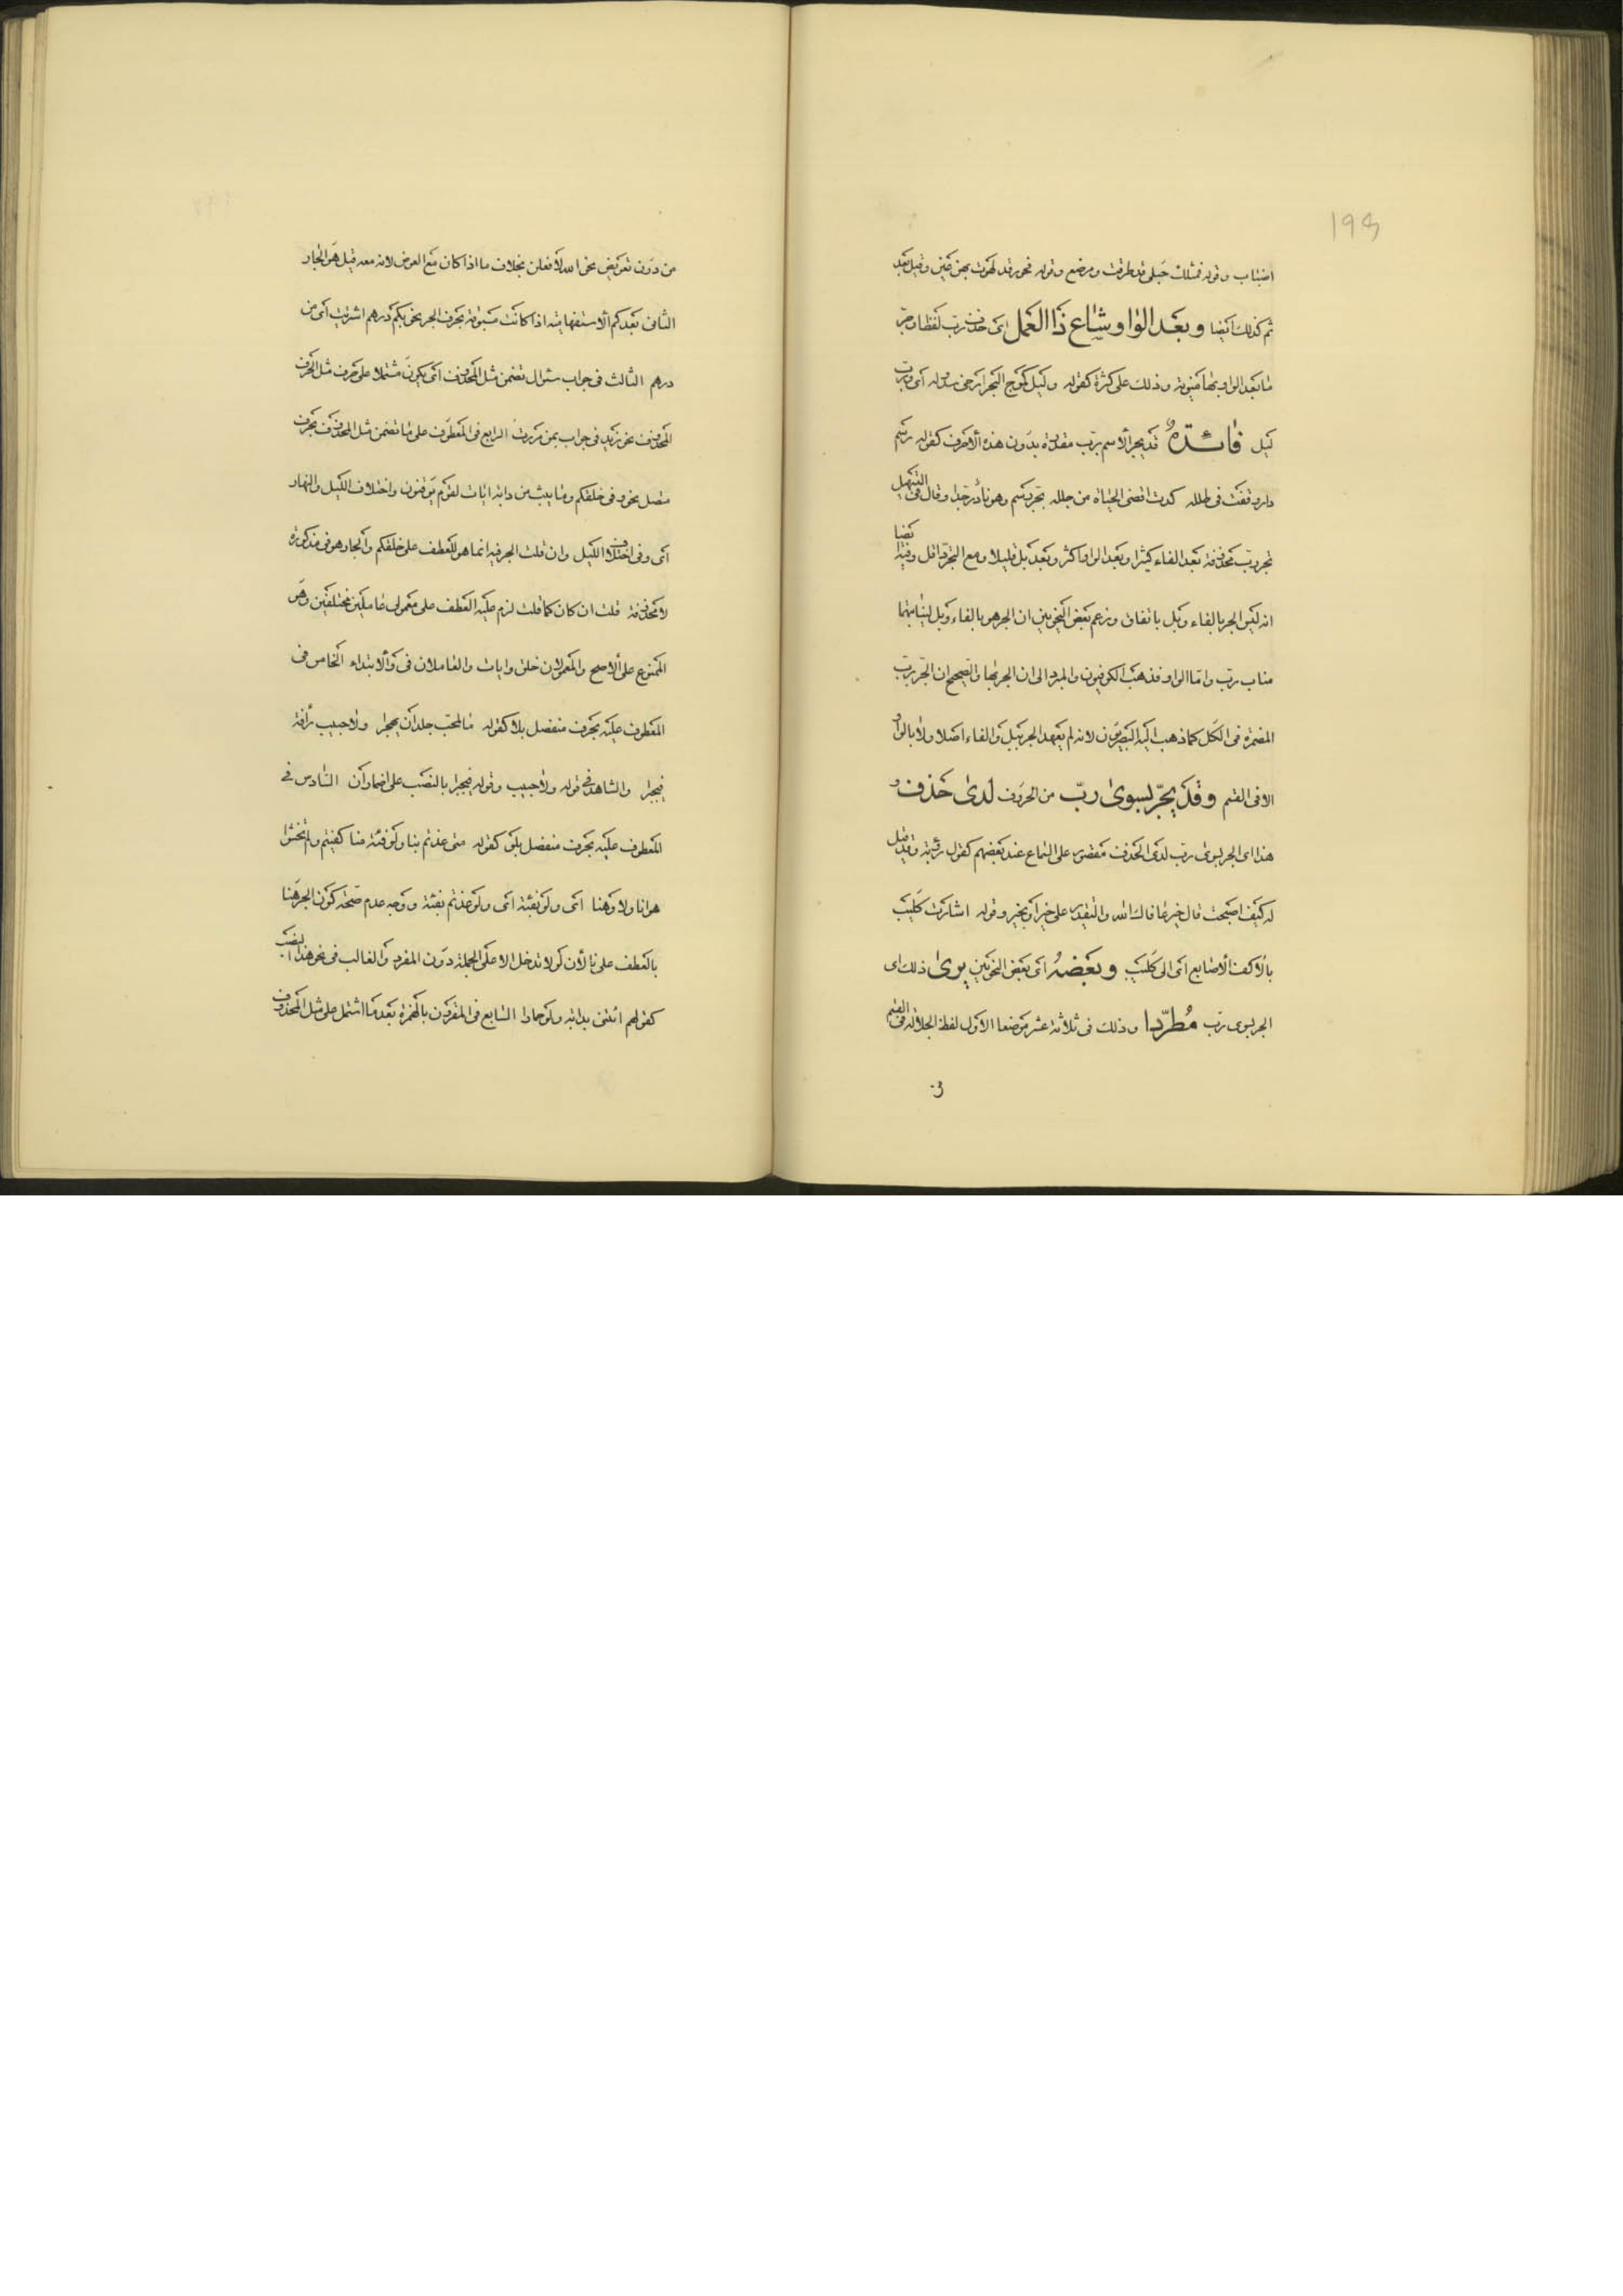 ١٩٤
اضباب وقوله فمثلك حبلى قد طرقت ومرضع وقوله فحور قد لهوت بهن عين وقيل بعد
ثم كذلك ايضا وبعد الواو شاع ذا العمل اى حذف رب لفظا وجر
ما بعد الواو بها منوية وذلك على كثرة كقوله وليل كموج البحر ارخى سدوله اى ورب
ليل فائدة قد يجر الاسم برب مقدرة بدون هذه الاحرف كقوله رسم
دار وقفت فى طلله كدت اقضى الحياة من جلله بجر رسم وهو نادر جدا وقال فى التسهيل
تجر رب محذوفة بعد الفاء كثيرا وبعد الواو اكثر وبعد بل قليلا ومع التجرد اقل وفيه ايضا
انه ليس الجر بالفاء وبل باتفاق وزعم بعض النحويين ان الجر هو بالفاء وبل لنيابتهما
مناب رب واما الواو فذهب الكوفيون والمبرد الى ان الجر بها والصحيح ان الجر برب
المضمرة فى الكل كما ذهب اليه البصريون لانه لم يعهد الجر ببل والفاء اصلا ولا بالواو
الا فى القسم وقد يجر بسوى رب من الحروف لدى حذف و
هذا اى الجر بسوى رب لدى الحذف مقصور على السماع عند بعضهم كقول رؤبة وقد قيل
له كيف اصبحت قال خير عافاك الله والتقدير على خير او بخير وقوله اشارت كليب
بالاكف الاصابع اى الى كليب وبعضه اى بعض النحويين يرى ذلك اى
الجر بسوى رب مطردا وذلك فى ثلاثة عشر موضعا الاول لفظ الجلالة فى القسم
من دون تعويض نحو الله لافعلن بخلاف ما اذا كان مع العوض لانه معه قيل هو الجار
الثانى بعد كم الاستفهامية اذا كانت مسبوقة بحرف الجر نحو بكم درهم اشريت اى من
درهم الثالث فى جواب سئوال تضمن مثل المحذوف اى يكون مشتملا على حرف مثل الحرف
المحذوف نحو زيد فى جواب بمن مررت الرابع فى المعطوف على ما تضمن مثل المحذوف بحرف
متصل نحو وفى خلقكم وما يبث من دابة ايات لقوم يوقنون واختلاف الليل والنهار
اى وفى اختلاف الليل وان قلت الجر فيه انما هو للعطف على خلقكم والجار هو فى مذكورة
لا محذوفة قلت ان كان كما قلت لزم عليه العطف على معمولى عاملين مختلفين وهو
الممنوع على الاصح والمعمولان خلق وايات والعاملان فى والابتداء الخامس فى
المعطوف عليه بحرف منفصل بلا كقوله ما لمحب جلد ان يهجرا ولا حبيب رأفة
فيجبرا والشاهد فى قوله ولا حبيب وقوله فيجبرا بالنصب على اضمار ان السادس فى
المعطوف عليه بحرف منفصل بلو كقوله متى عذتم بنا ولو فئة منا كفيتم ولم تخشوا
هوانا ولا وهنا اى ولو بفئة اى ولو عذتم بفئة ووجه عدم صحة كون الجر هنا
بالعطف على نا لأن لو لا تدخل الا على الجملة دون المفرد والغالب فى نحو هذا النصب
كقولهم ائتنى بدابة ولو حمارا السابع فى المقرون بالهمزة بعد ما اشتمل على مثل المحذوف